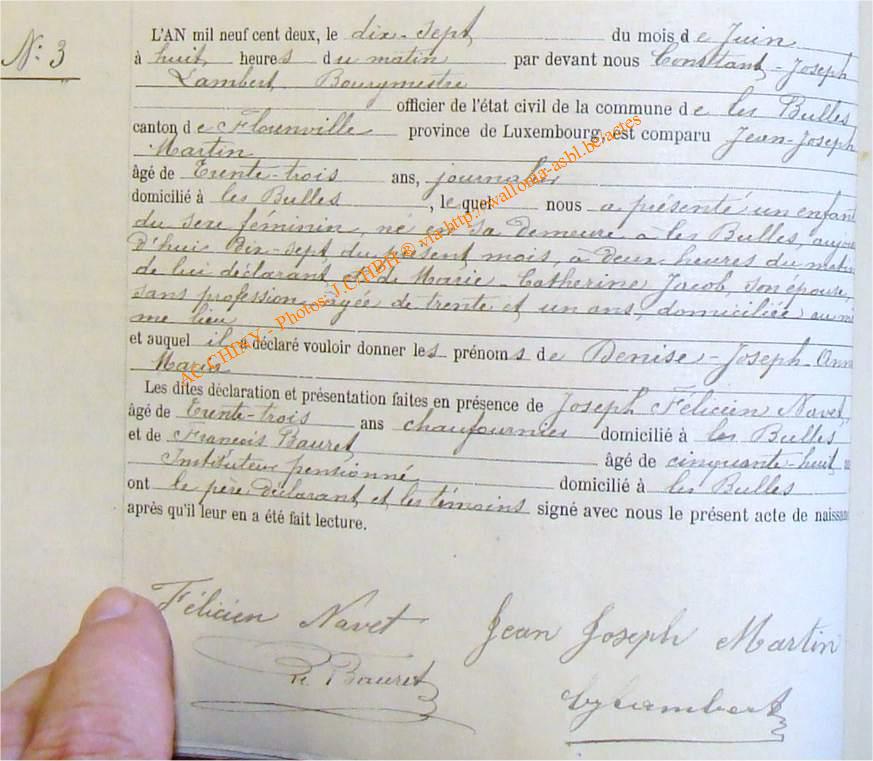 N: 3
L'AN mil neuf cent deux, le dix-sept du mois de Juin
à huit heures du matin par devant nous Constant-Joseph
Lambert Bourgmestre
officier de l'état civil de la commune de les Bulles
canton de Florenville province de Luxembourg, est comparu Jean-Joseph
Martin
âgé de Trente-trois ans, journalier
domicilié à les Bulles, lequel nous a présenté un enfant
du sexe féminin, né en sa demeure à les Bulles, aujour
D'hui Dix-sept du présent mois, à deux heures du matin
de lui déclarant et de Marie-Catherine Jacob, son épouse,
sans profession, agée de trente et un ans, domiciliée au mê
me lieu
et auquel il a déclaré vouloir donner les prénoms de Denise-Joseph-Ann
Maria
Les dites déclaration et présentation faites en présence de Joseph Félicien Navet,
âgé de Trente-trois ans chaufournier domicilié à les Bulles
et de François Bauret âgé de cinquante-huit
Instituteur pensionné domicilié à les Bulles
ont le père déclarant et les témoins signé avec nous le présent acte de naissan
après qu'il leur en a été fait lecture.
Félicien Navet Jean Joseph Martin
Bauret
Lambert
Photos J.C/HBH ® via http://walloma-asbl.be/actes